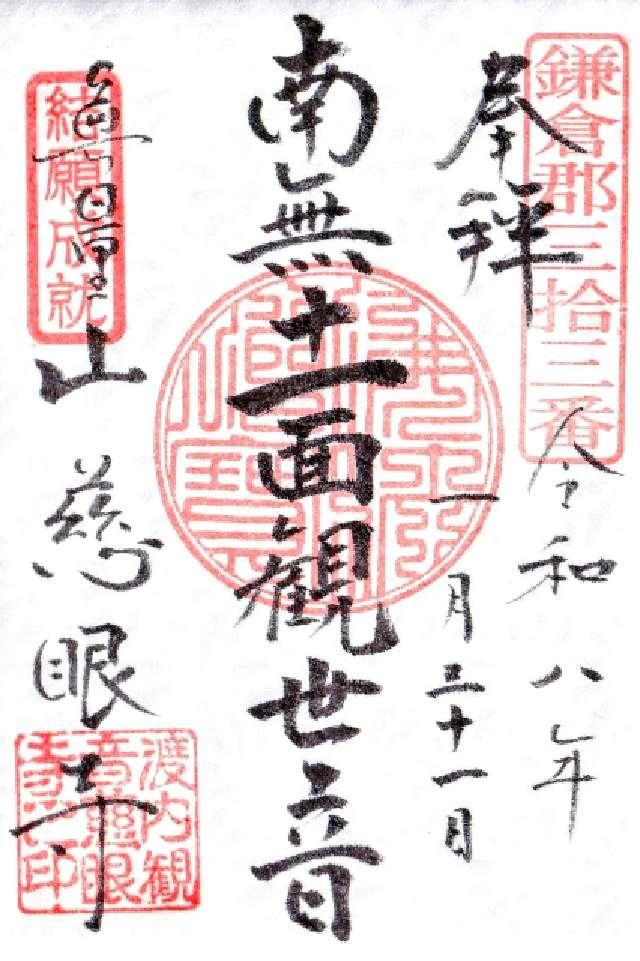 鎌倉郡三拾三番
奉拝
令和八年
一月三十一日
南無十一面観世音
結願成就
山 慈眼寺
渡内観
音慈眼
寺印